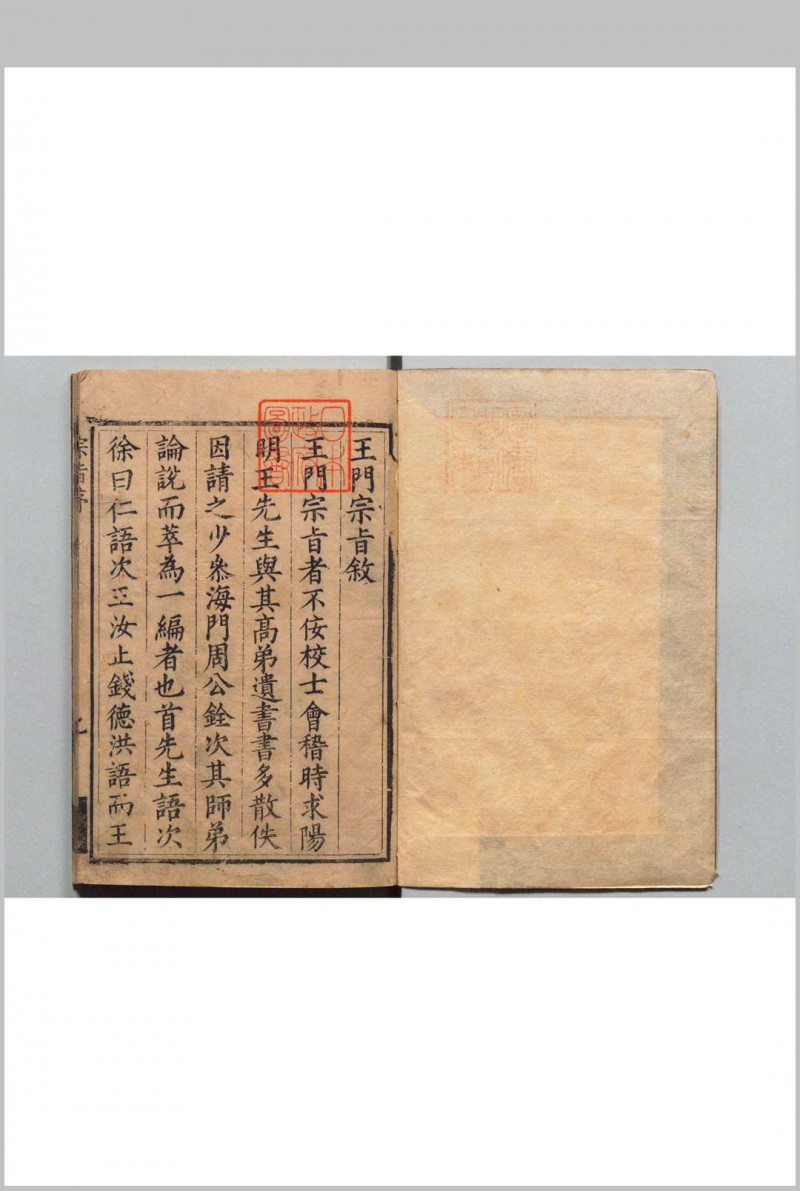 王門宗旨敘
王門宗旨者不佞校士會稽時求陽
明王先生與其高弟遺書書多散佚
因請之少叅海門周公銓次其師弟
論說而萃為一編者也首先生語次
徐曰仁語次王汝止錢德洪語而王
宗旨序
日本政府圖書